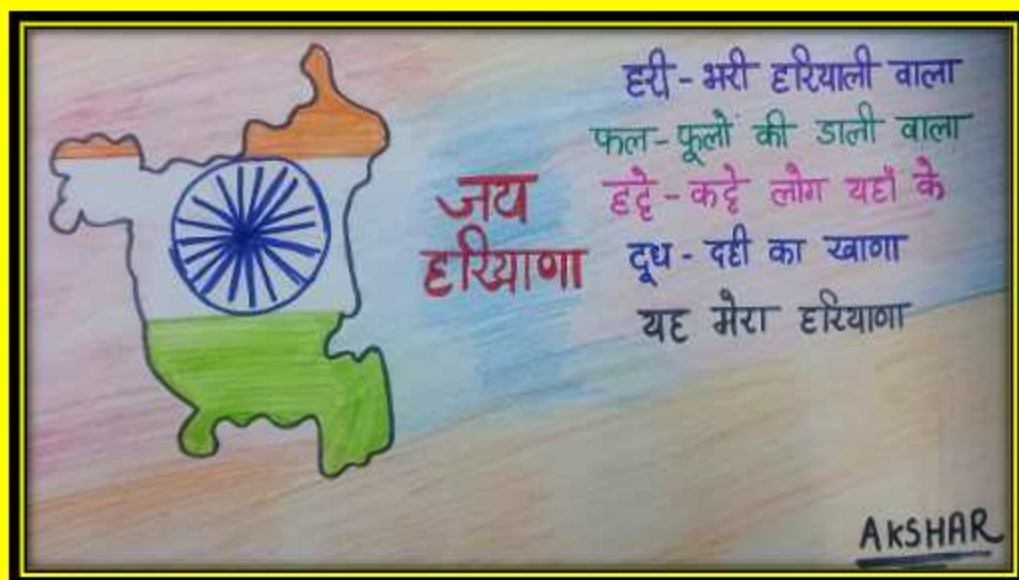 जय
हरियाणा
हरी - भरी हरियाली वाला
फल - फूलों की डाली वाला
हट्टे - कट्टे लोग यहाँ के
दूध - दही का खाणा
यह मेरा हरियाणा
AKSHAR